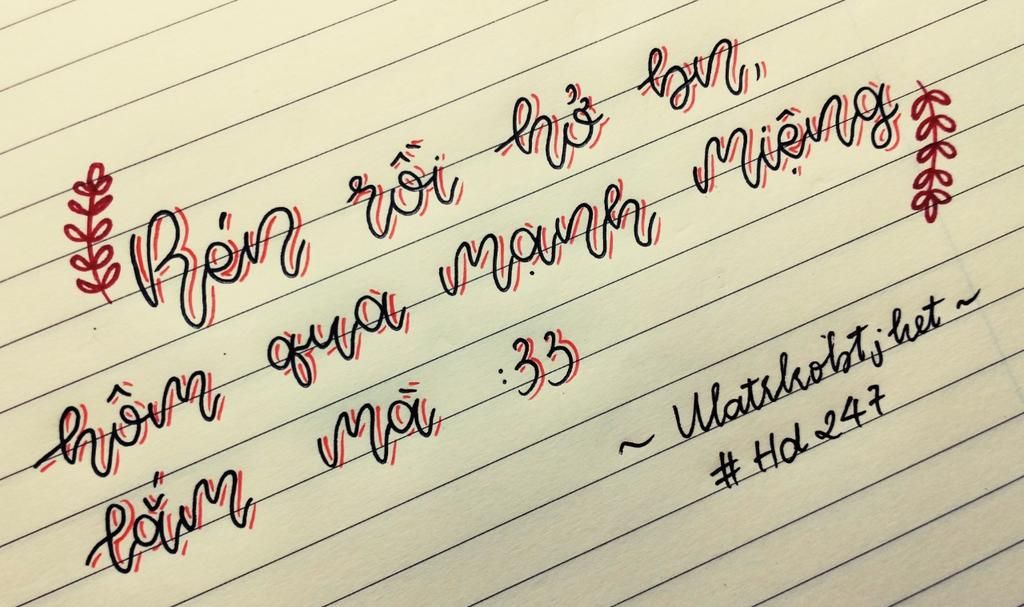 Rén rồi hở bn,
hôm qua mạnh miệng
lắm mà :33
~ Ulatskobtjhet ~
# Hd 247